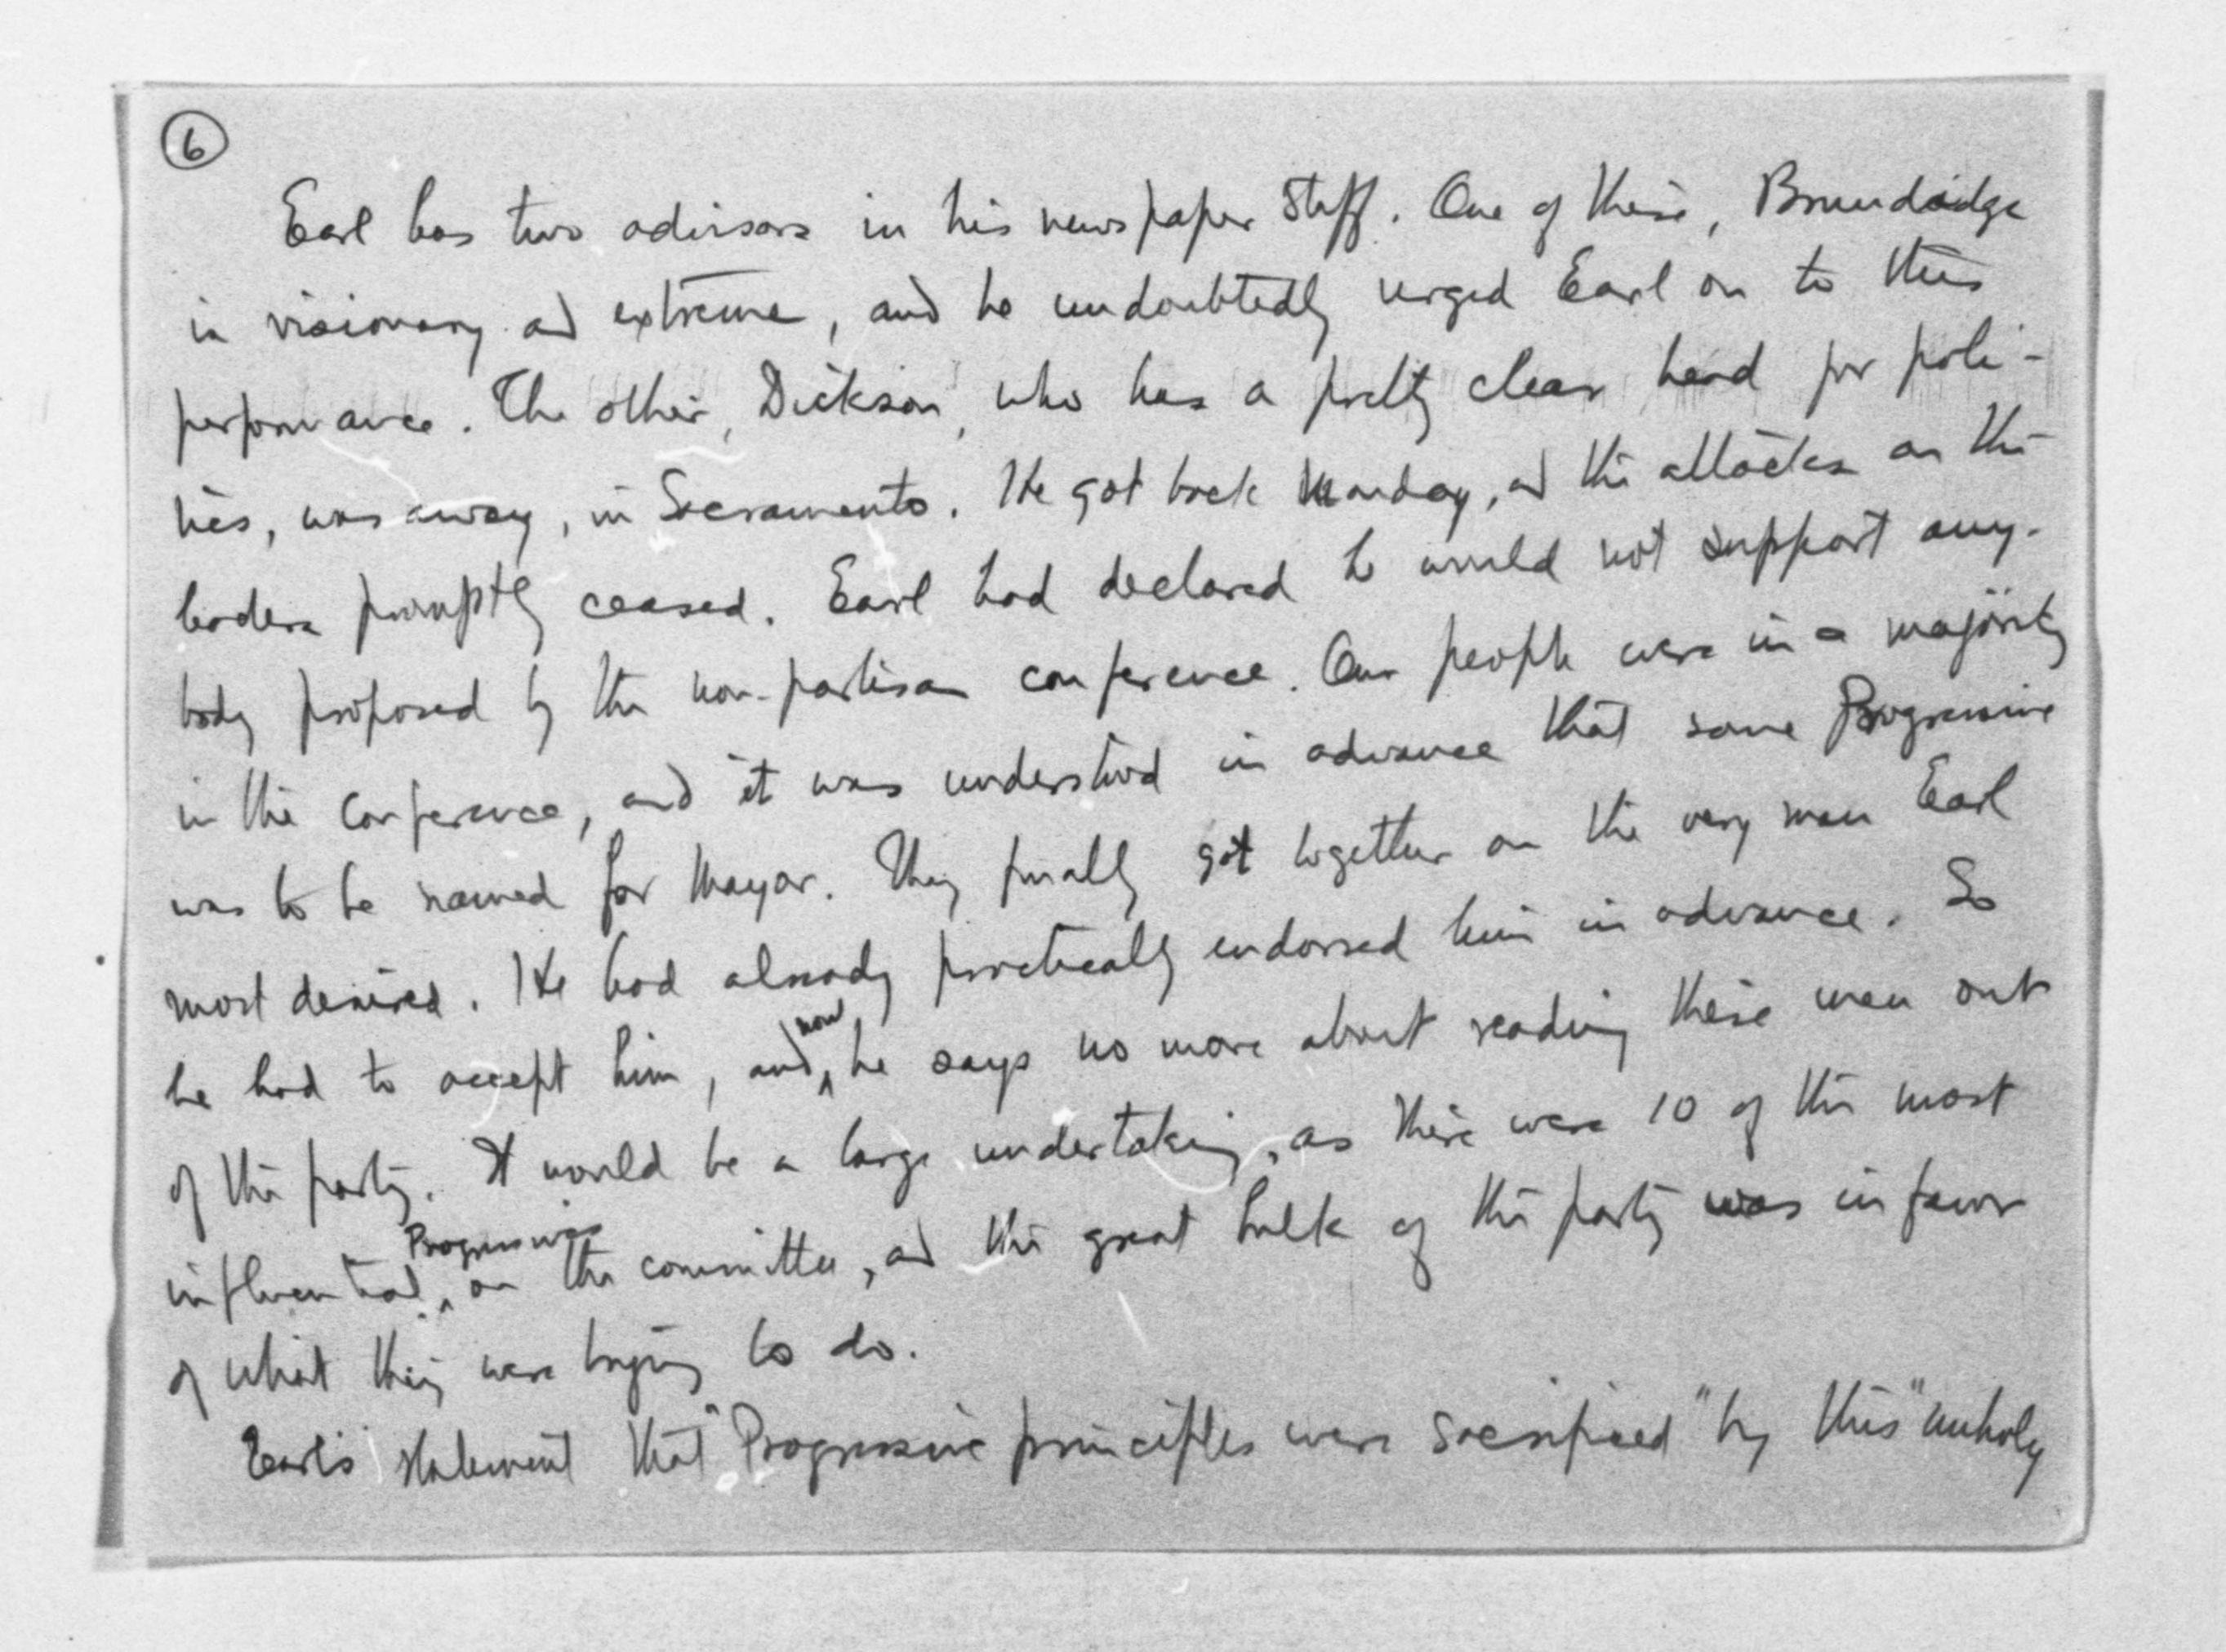 6
Earl has two advisors in his newspaper staff. One of these, Brundidge
is visionary and extreme, and he undoubtedly urged Earl on to this
performance. The other, Dickson, who has a pretty clear head for poli-
tics, was away, in Sacramento. He got back Monday, and the attacks on the
leaders promptly ceased. Earl had declared he would not support any-
body proposed by the non-partisan conference. Our people were in a majority
in the conference, and it was understood in advance that some Progressive
was to be named for Mayor. They finally got together on the very man Earl
most desired. He had already practically endorsed him in advance. So
he had to accept him, and now he says no more about reading these men out
of the party. It would be a large undertaking, as there were 10 of the most
influential Progressives on the committee, and the great bulk of the party was in favor
of what they were trying to do.
Earl's statement that "Progressive principles were sacrificed" by this "unholy